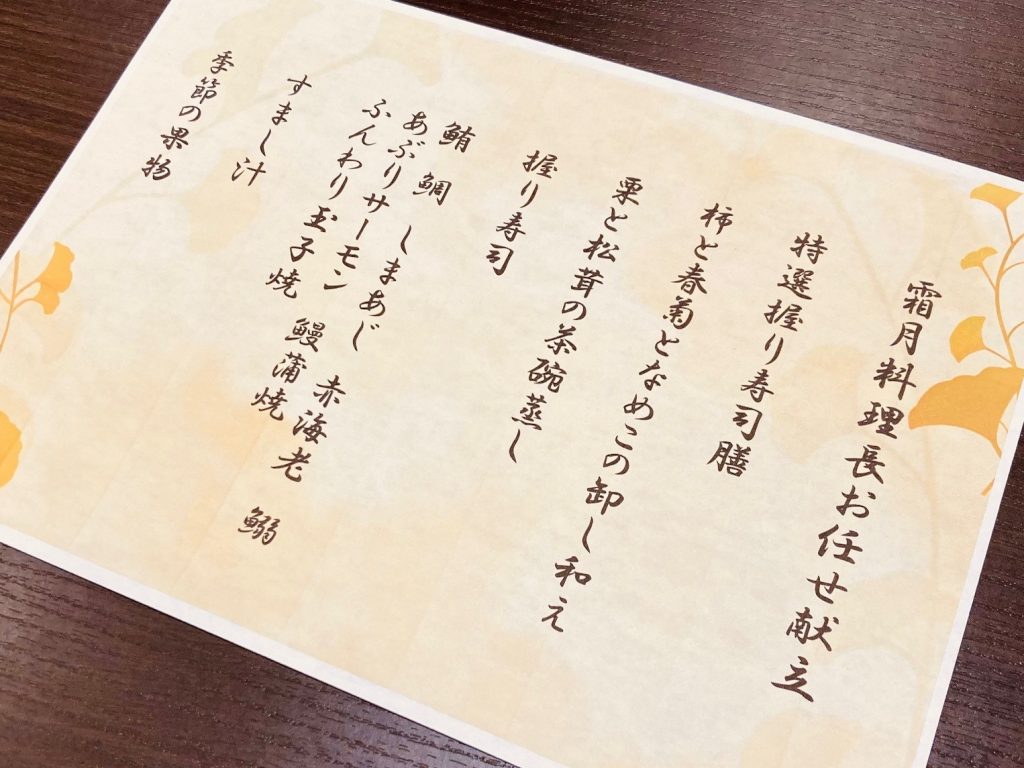 霜月料理長お任せ献立
特選握り寿司膳
柿と春菊となめこの卸し和え
栗と松茸の茶碗蒸し
握り寿司
鮪 鯛 しまあじ 赤海老 鰯
あぶりサーモン 鰻蒲焼
ふんわり玉子焼
すまし汁
季節の果物